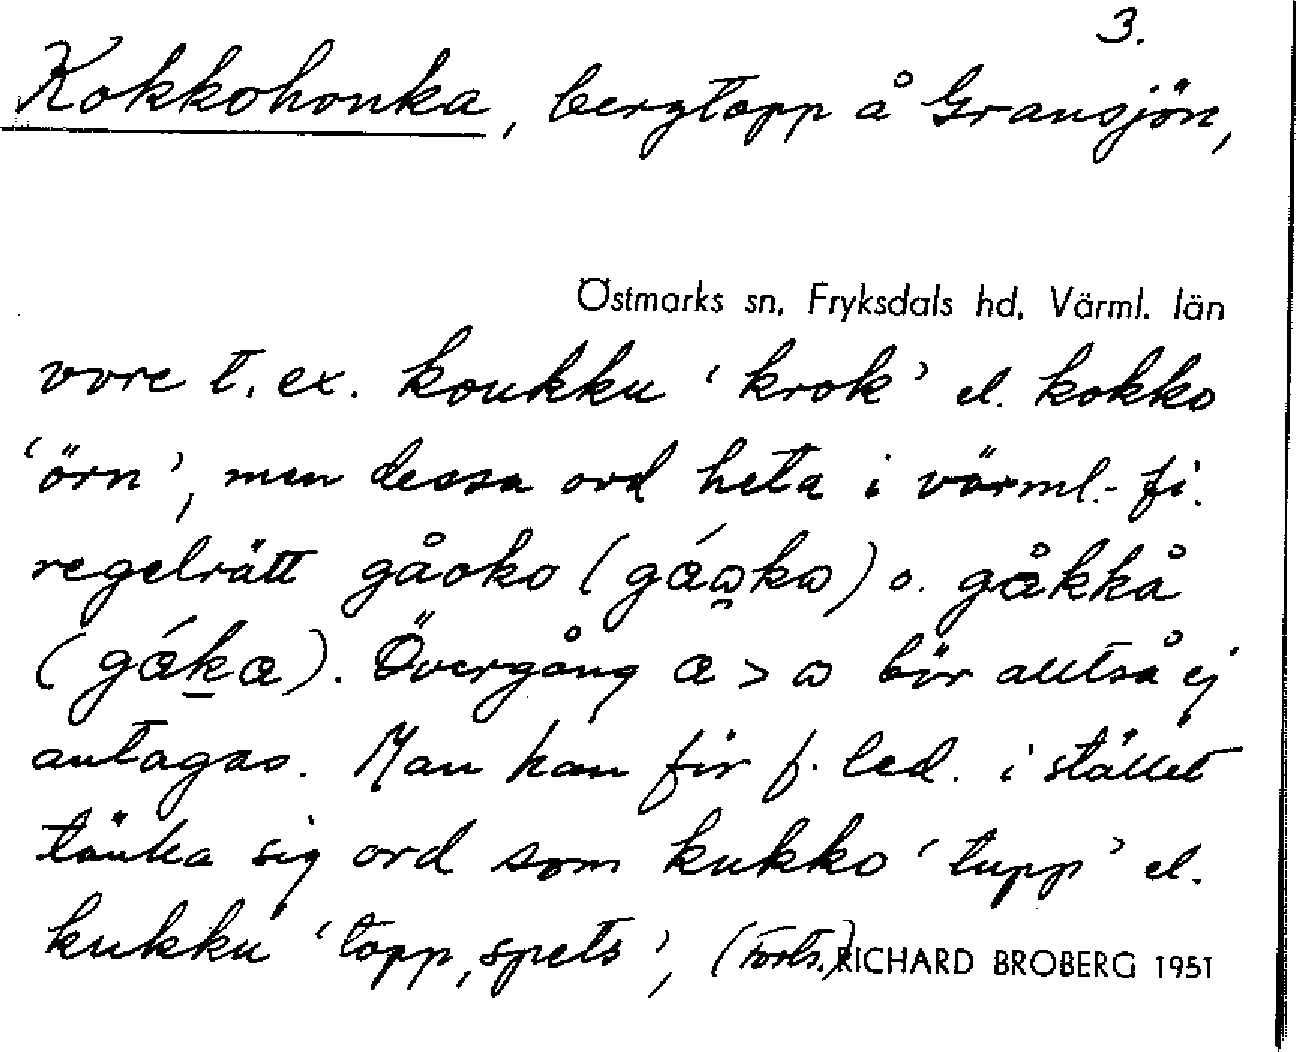 3.
Kokkohonka, bergtopp å Gransjön,
Östmarks sn, Fryksdals hd, Värml. län
vore t. ex. koukku 'krok' el. kokko
'örn', men dessa ord heta i värml.-fi.
regelrätt gåoko (gɷ́) o. gåkkå
Övergång bör alltså ej
antagas. Man kan för f. led. i stället
tänka sig ord som kukko 'tupp' el.
kukku 'topp, spets', (forts.)
RICHARD BROBERG 1951